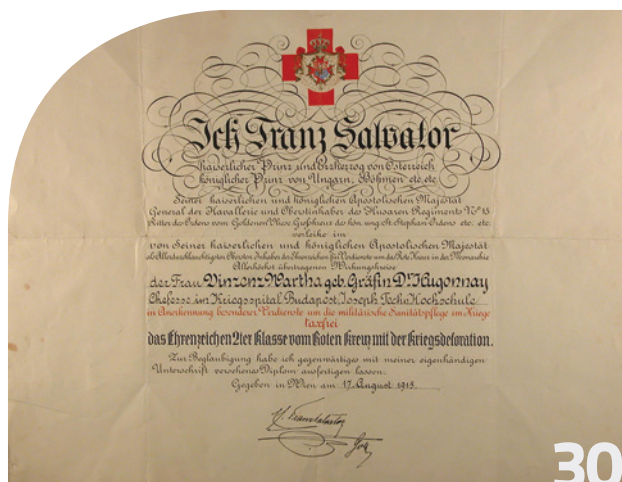 Ich Franz Salvator
kaiserlicher Prinz und Erzherzog von Österreich
königlicher Prinz von Ungarn, Böhmen etc. etc.
Seiner kaiserlichen und königlichen Apostolischen Majestät
General der Kavallerie und Oberstinhaber des Husaren Regiments No 15
Ritter des Ordens vom Goldenen Vliese Großkreuz des kön. ung. St. Stephan Ordens etc. etc.
verleihe im
von Seiner kaiserlichen und königlichen Apostolischen Majestät
als Allerdurchlauchtigsten Obersten Inhaber der Ehrenzeichen für Verdienste um das Rote Kreuz in der Monarchie
Allerhöchst übertragenen Wirkungskreise
der Frau Vinzenz Wartha geb. Gräfin Dr. Hugonnay
Chefesse im Kriegsspital Budapest, Joseph Techn. Hochschule
in Anerkennung besonderer Verdienste um die militärische Sanitätspflege im Kriege
taxfrei
das Ehrenzeichen 2ter Klasse vom Roten Kreuz mit der Kriegsdekoration.
Zur Beglaubigung habe ich gegenwärtiges mit meiner eigenhändigen
Unterschrift versehenes Diplom ausfertigen lassen.
Gegeben in Wien am 17. August 1915.
30